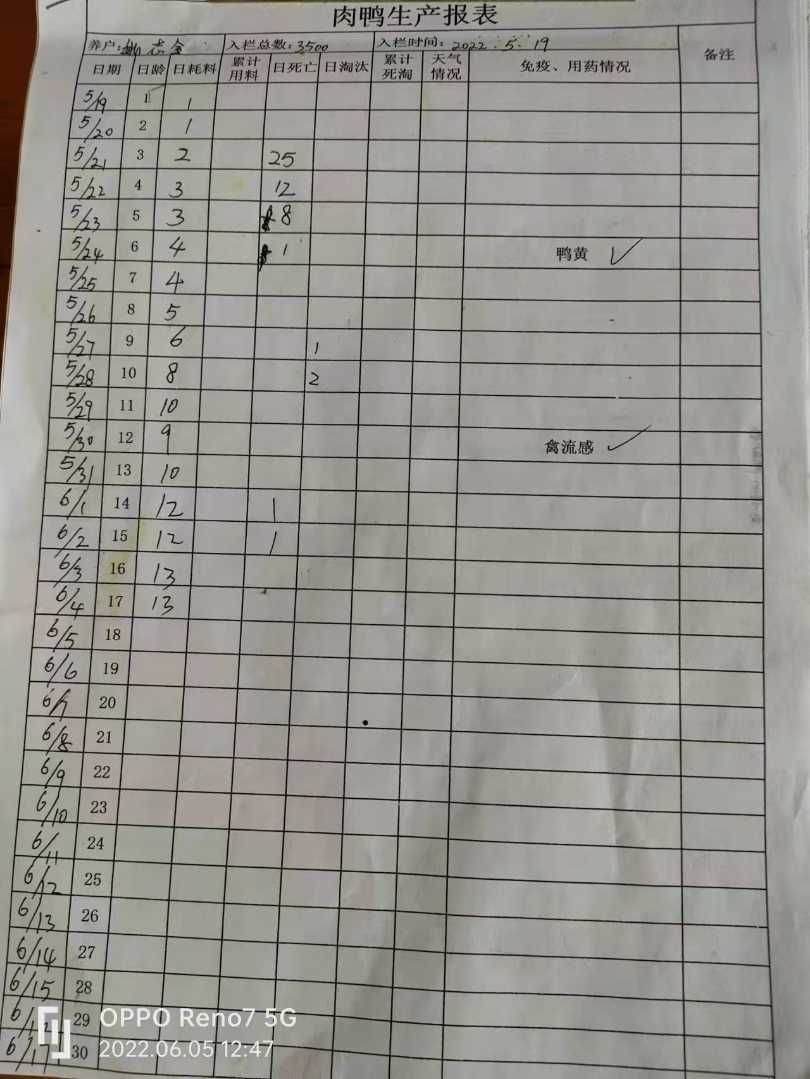 肉鸭生产报表
养户: 志金 入栏总数:3500 入栏时间:2022.5.19 备注
日期 日龄 日耗料 累计用料 日死亡 日淘汰 累计死淘 天气情况 免疫、用药情况
5/19 1 1
5/20 2 1
5/21 3 2 25
5/22 4 3 12
5/23 5 3 8
5/24 6 4 1 鸭黄 ✓
5/25 7 4
5/26 8 5
5/27 9 6 1
5/28 10 8 2
5/29 11 10
5/30 12 9 禽流感 ✓
5/31 13 10
6/1 14 12 1
6/2 15 12 1
6/3 16 13
6/4 17 13
6/5 18
6/6 19
6/7 20
6/8 21
6/9 22
6/10 23
6/11 24
6/12 25
6/13 26
6/14 27
6/15 28
29
6/17 30
OPPO Reno7 5G
2022.06.05 12:47